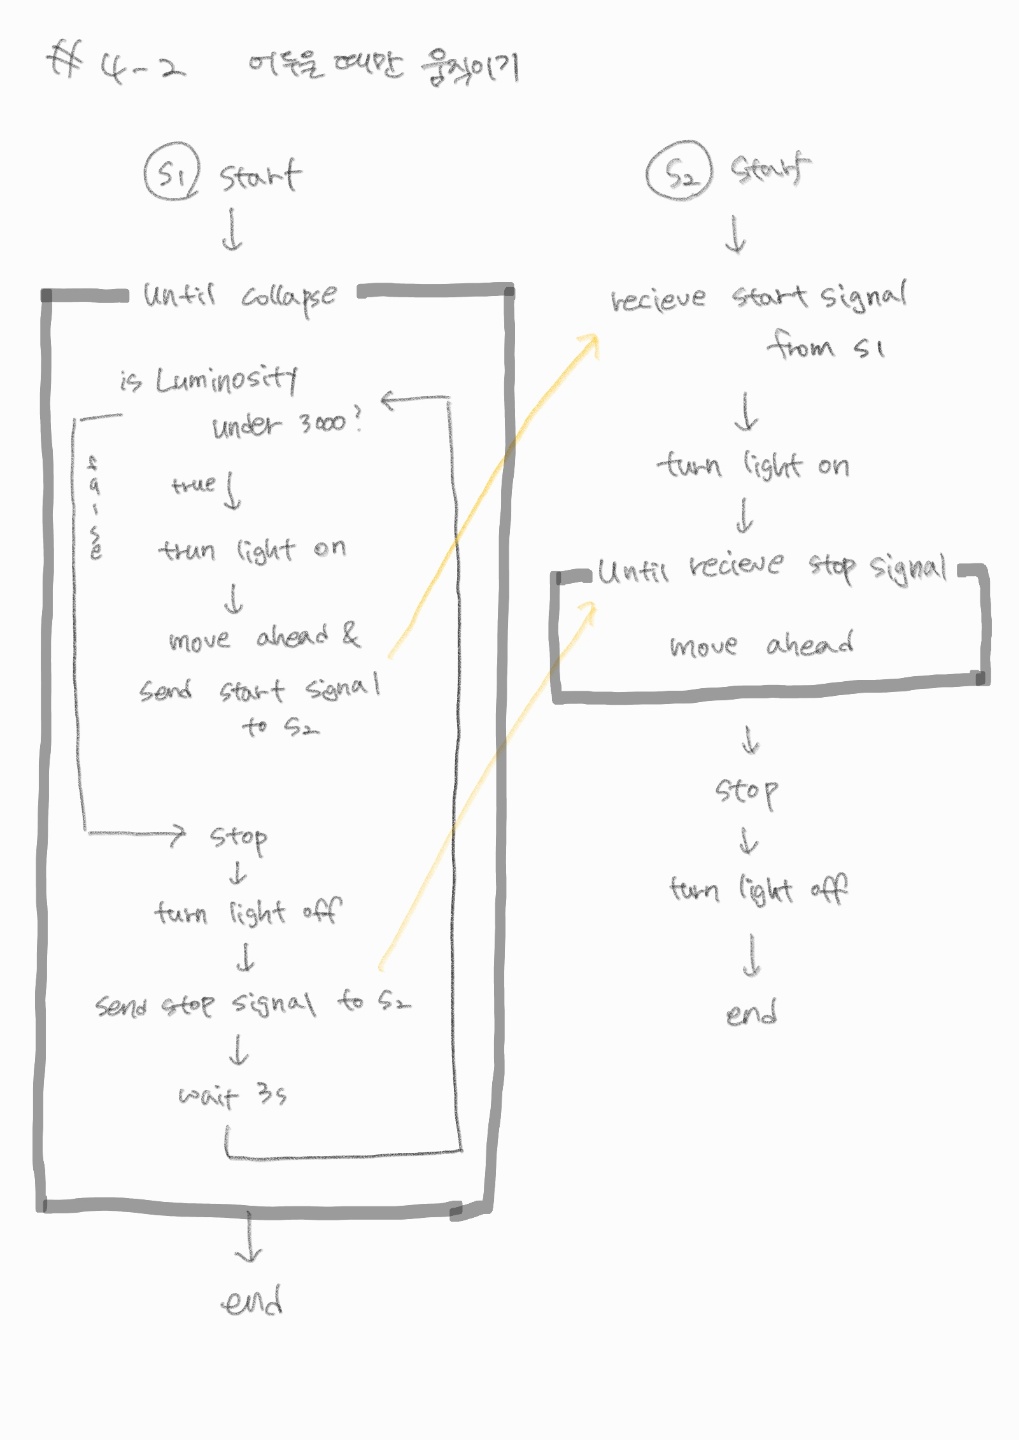 # 4-2 어두울 때만 움직이기
S1 start
until collapse
is Luminosity
under 3000?
false
true
trun light on
move ahead &
send start signal
to S2
stop
turn light off
send stop signal to S2
wait 3s
end
S2 start
recieve start signal
from S1
turn light on
Until recieve stop signal
move ahead
stop
turn light off
end